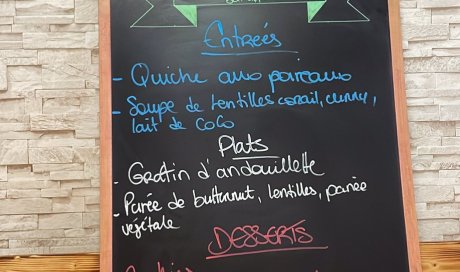 Entreés
- Quiche aux poireaux
- Soupe de lentilles corail, curry,
lait de coco
Plats
- Gratin d'andouillette
- Purée de butternut, lentilles, panée
végétale
DESSERTS